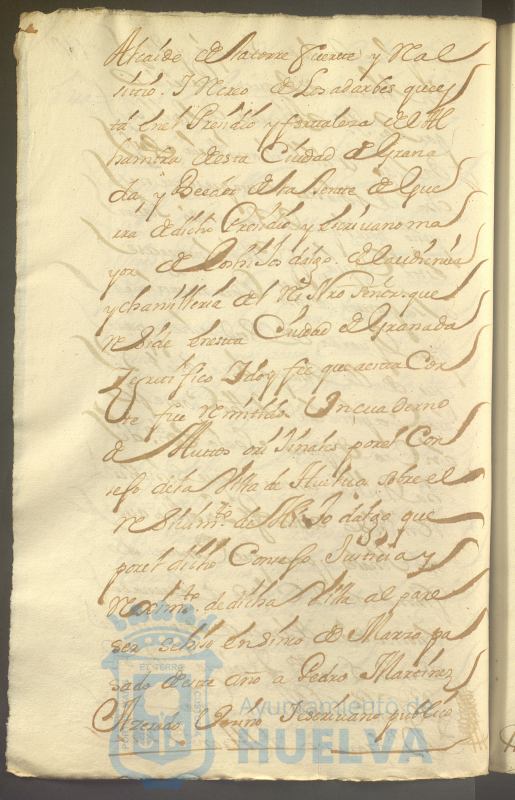 Alcaide de la torre fuerte y Real
sitio. I Nereo de Los adarbes que es
tá en el Presidio y fortaleza del Al
hambra desta Ciudad de Grana
da, y Beedor de la Jente de Gue
rra de dicho Presidio y escrivano ma
yor de los hijos dalgo. de la audiencia
y chancilleria del Rey Nro Señor que
Reside en esta Ciudad de Granada
Zertifico I doy fee que a esta Cor
te fue remitido Un cuaderno
de Autos orijinales por el Con
sejo de la Villa de Huelva sobre el
Resevimto. de Hijo dalgo que
por el dicho Consejo Justicia y
Reximto. de dicha Villa al pare
ser se hiso en dinco de Marzo pa
sado de este año a Pedro Martinez
Azerado Vezino I escrivano publico
Ayuntamiento de
HUELVA